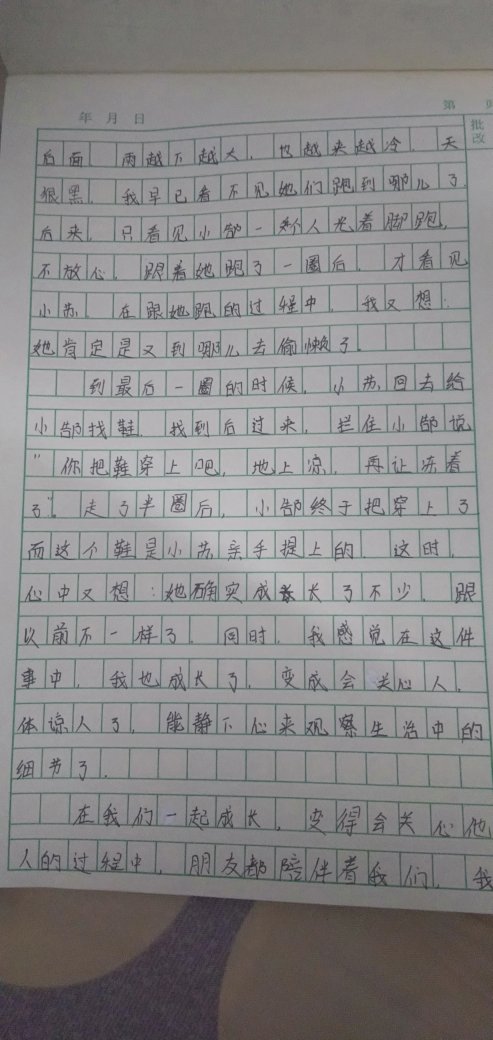 年 月 日
第
批改
后面 雨越下越大，也越来越冷．天
很黑．我早已看不见她们跑到哪儿了．
后来，只看见小郜一个人光着脚跑，
不放心，跟着她跑了一圈后，才看见
小苏．在跟她跑的过程中，我又想：
她肯定是又到哪儿去偷懒了．
到最后一圈的时候，小苏回去给
小郜找鞋．找到后过来，拦住小郜说
"你把鞋穿上吧，地上凉，再让冻着
了"．走了半圈后，小郜终于把穿上了
而这个鞋是小苏亲手提上的 这时，
心中又想：她确实成长了不少．跟
以前不一样了．同时，我感觉在这件
事中，我也成长了，变成会关心人，
体谅人了，能静下心来观察生活中的
细节了．
在我们一起成长，变得会关心他
人的过程中，朋友都陪伴着我们．我